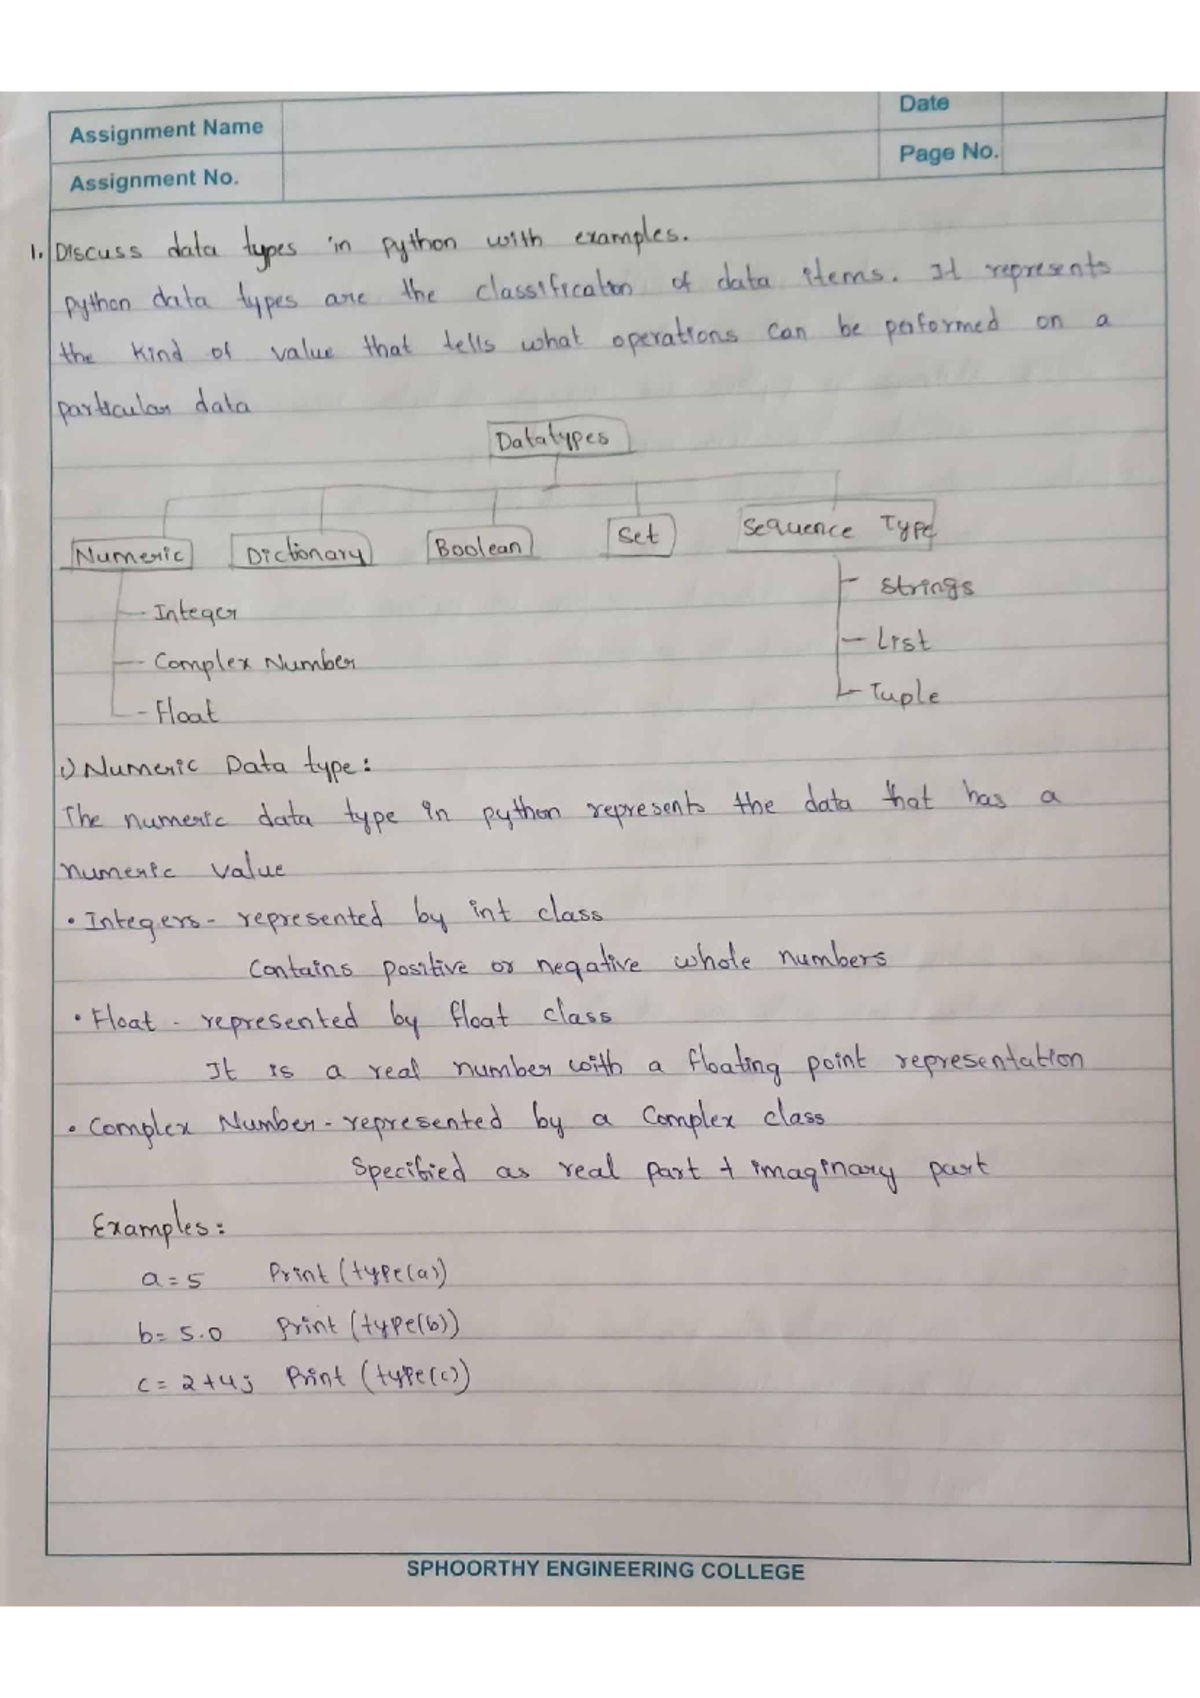 Assignment Name
Date
Assignment No.
Page No.
1. Discuss data types in python with examples.
python data types are the classification of data items. It represents
the kind of value that tells what operations can be performed on a
particular data
Datatypes
Numeric Dictionary Boolean Set Sequence Type
- Integer
- Complex Number
- Float
- Strings
- List
- Tuple
1) Numeric Data type:
The numeric data type in python represents the data that has a
numeric value
• Integers - represented by int class
Contains positive or negative whole numbers
• Float - represented by float class
It is a real number with a floating point representation
• Complex Number - represented by a Complex class
Specified as real part + imaginary part
Examples:
a = 5 Print (type(a))
b = 5.0 Print (type(b))
c = 2+4j Print (type(c))
SPHOORTHY ENGINEERING COLLEGE